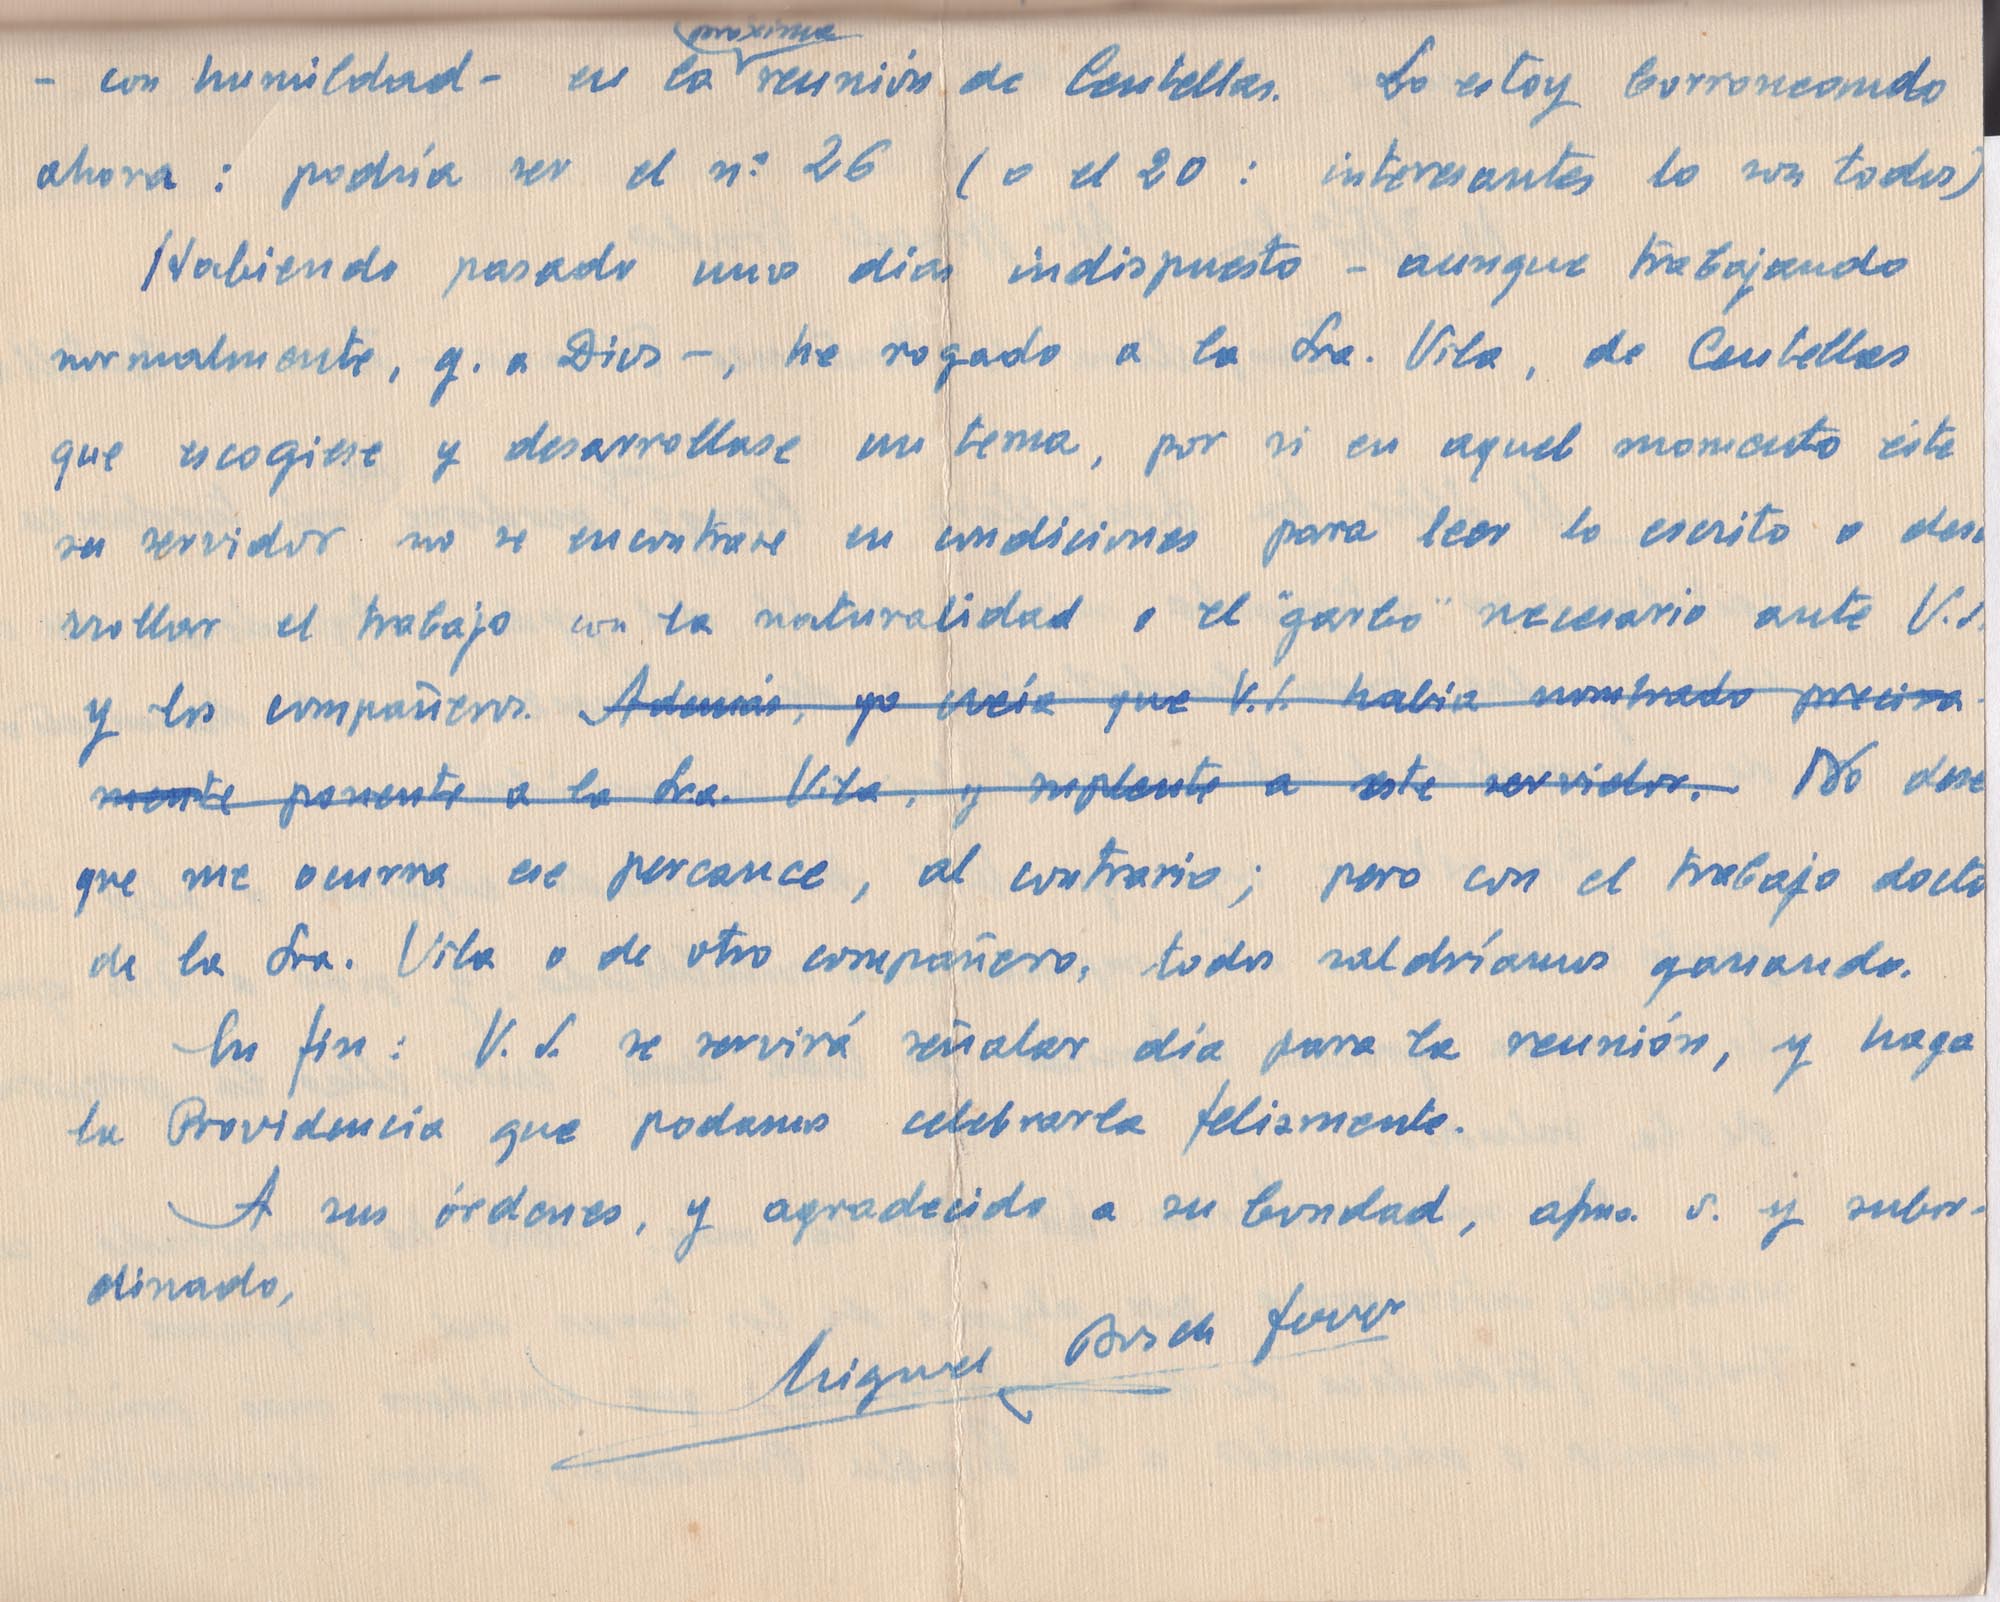 próxima
- con humildad - en la reunión de Centellas. Lo estoy borroneando
ahora : podría ser el n.º 26 ( o el 20 : interesantes lo son todos)
Habiendo pasado unos días indispuesto - aunque trabajando
normalmente, g. a Dios -, he rogado a la Sra. Vila, de Centellas
que escogiese y desarrollase un tema, por si en aquel momento éste
su servidor no se encontrase en condiciones para leer lo escrito o desa
rrollar el trabajo con la naturalidad o el "garbo" necesario ante V.S.
y los compañeros. Además, yo creía que V.S. había nombrado precisa-
mente ponente a la Sra. Vila, y suplente a este servidor. No dese
que me ocurra ese percance, al contrario; pero con el trabajo docto
de la Sra. Vila o de otro compañero, todos saldríamos ganando.
En fin : V. S. se servirá señalar día para la reunión, y haga
la Providencia que podamos celebrarla felizmente.
A sus órdenes, y agradecido a su bondad, afmo. s. y subor-
dinado,
Miguel Bosch Ferrer